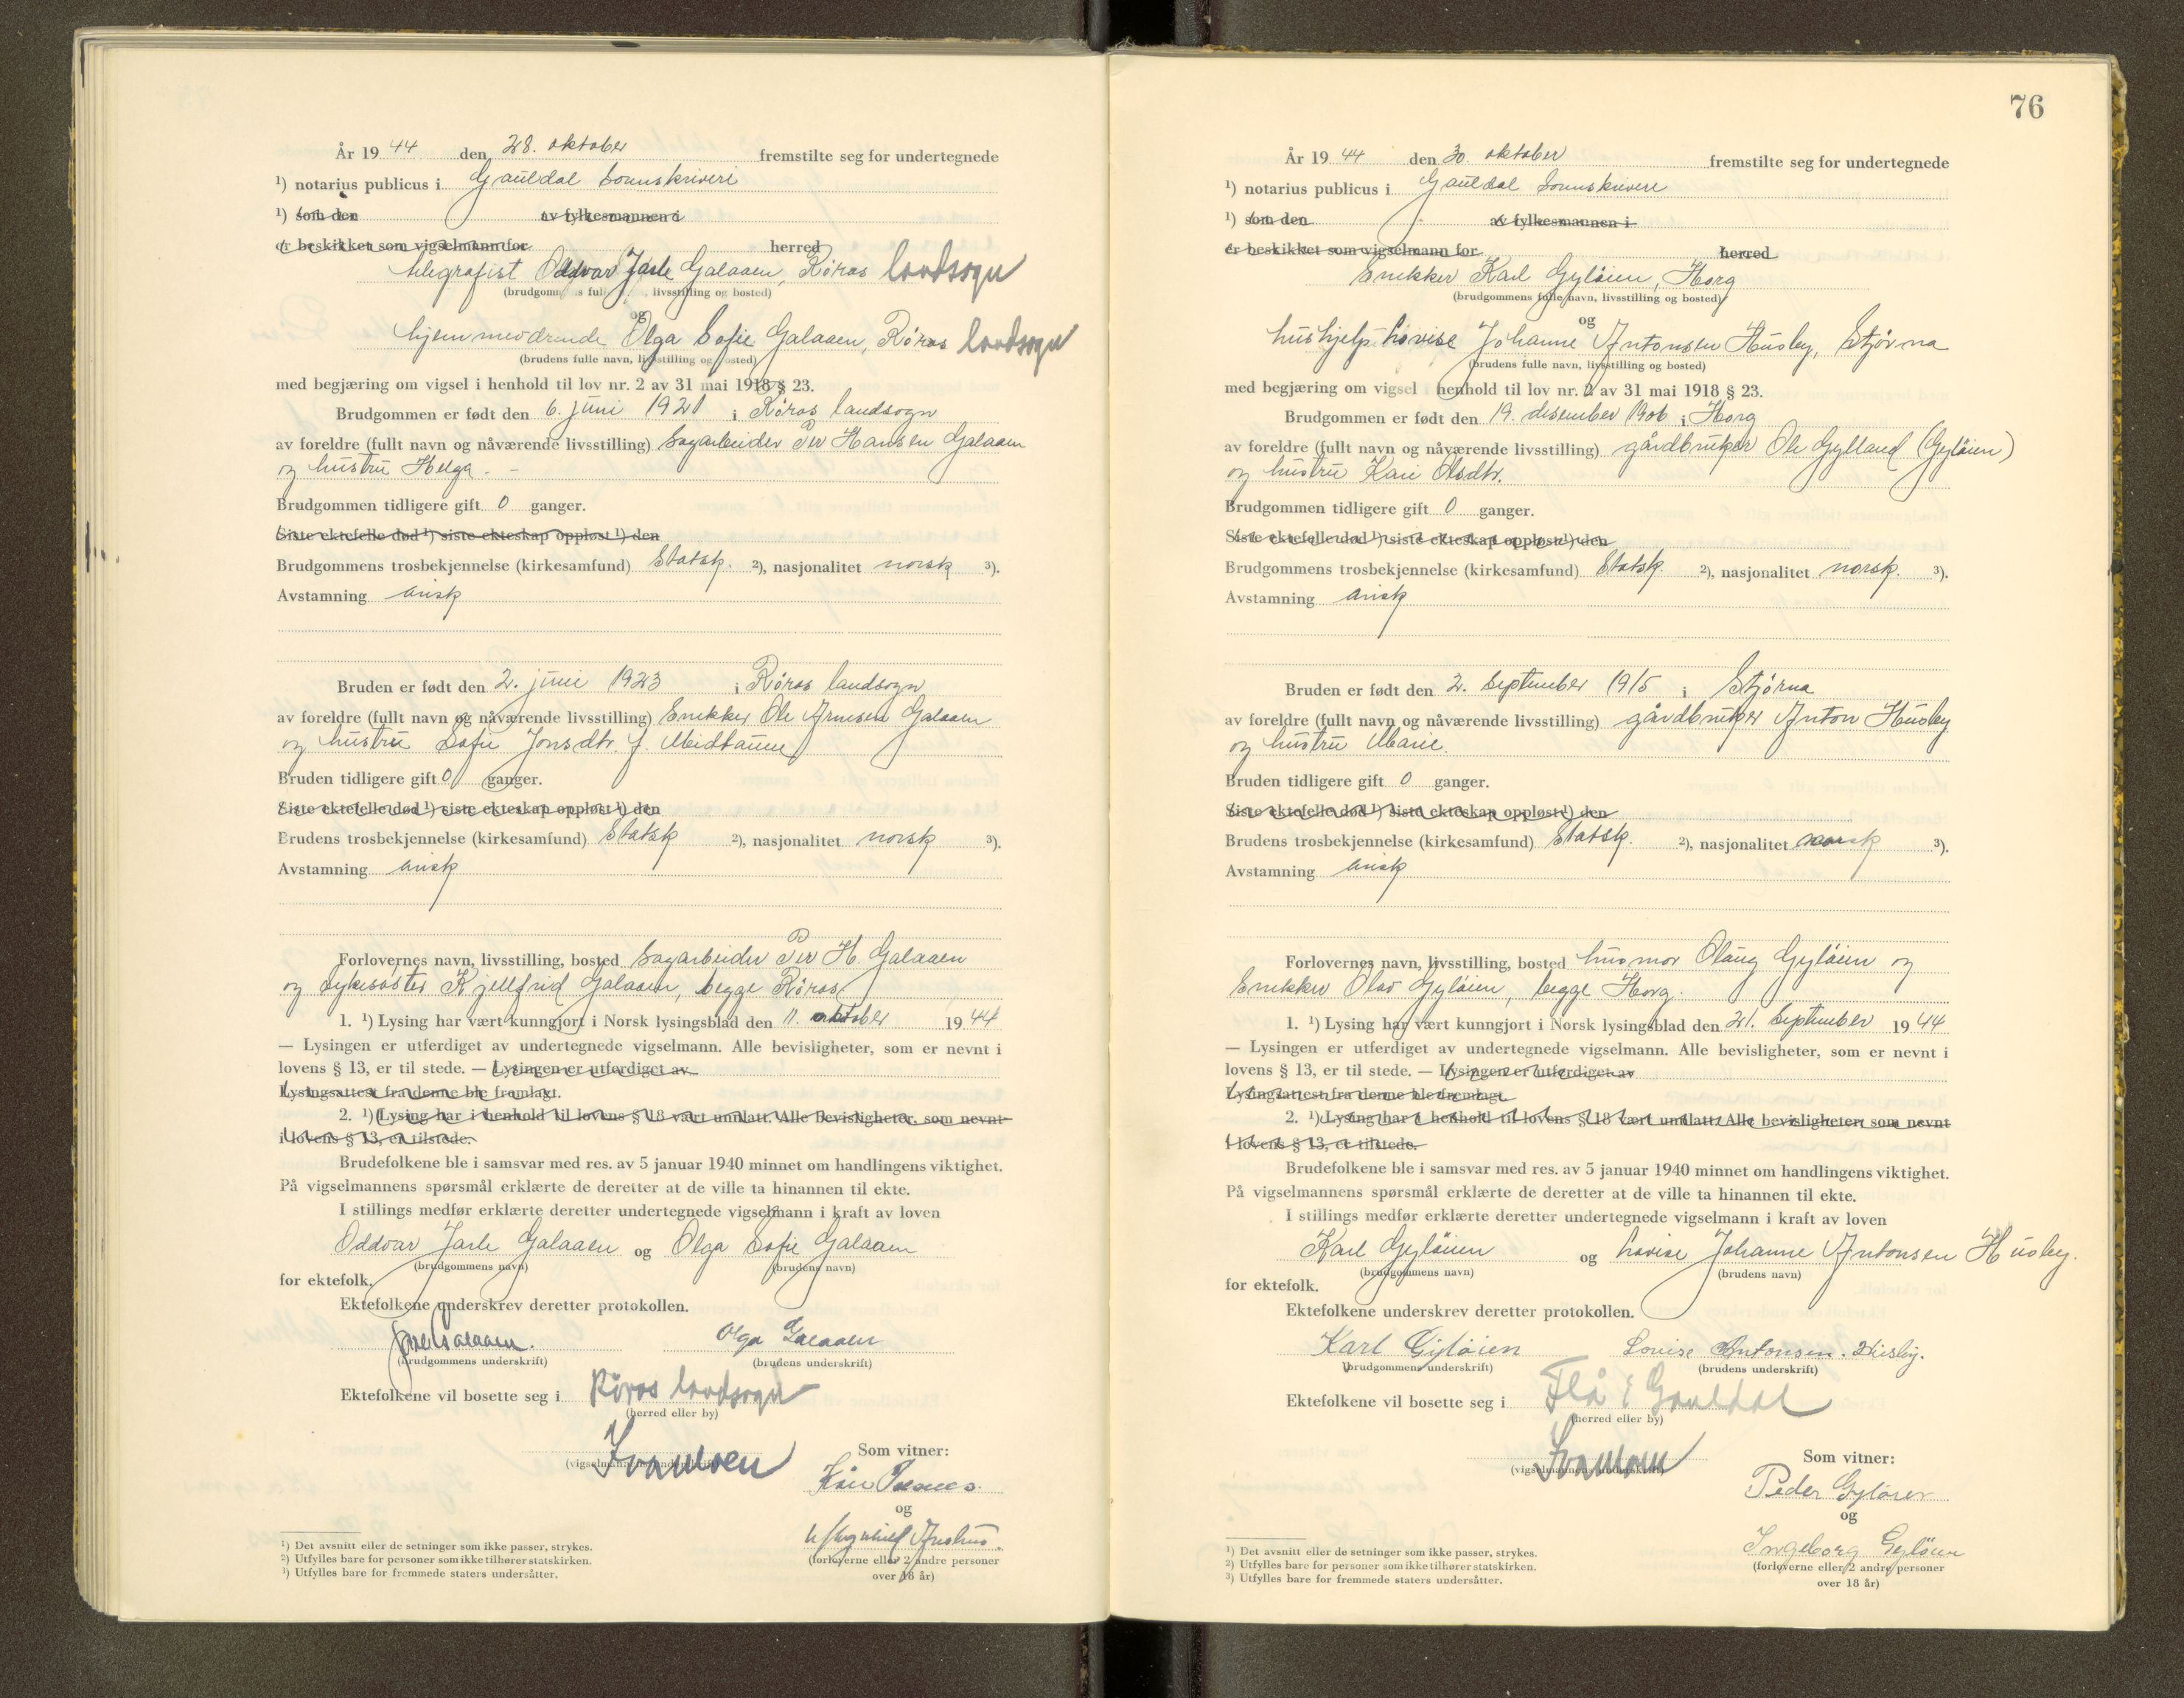 År 19 44 den 28. oktober fremstilte seg for undertegnede
¹) notarius publicus i Gauldal sorenskriveri
¹) som den av fylkesmannen i
er beskikket som vigselmann for herred
telegrafist Oddvar Jarle Galaaen, Røros landsogn
(brudgommens fulle navn, livsstilling og bosted)
og
hjemmeværende Olga Sofie Galaaen, Røros landsogn
(brudens fulle navn, livsstilling og bosted)
med begjæring om vigsel i henhold til lov nr. 2 av 31 mai 1918 § 23.
Brudgommen er født den 6. juni 1921 i Røros landsogn
av foreldre (fullt navn og nåværende livsstilling) Sagarbeider Per Hansen Galaaen
og hustru Helga. -
Brudgommen tidligere gift 0 ganger.
Siste ektefelle død ¹) siste ekteskap oppløst ¹) den
Brudgommens trosbekjennelse (kirkesamfund) Statsk. ²), nasjonalitet norsk ³).
Avstamning arisk
Bruden er født den 2. juni 1923 i Røros landsogn
av foreldre (fullt navn og nåværende livsstilling) Snekker Ole Arnesen Galaaen
og hustru Sofie Jonsdtr. f. Midtaune
Bruden tidligere gift 0 ganger.
Siste ektefelle død ¹) siste ekteskap oppløst ¹) den
Brudens trosbekjennelse (kirkesamfund) Statsk ²), nasjonalitet norsk ³).
Avstamning arisk
Forlovernes navn, livsstilling, bosted Sagarbeider Per H. Galaaen
og sykesøster Kjellfrid Galaaen, begge Røros
1. ¹) Lysing har vært kunngjort i Norsk lysingsblad den 11. oktober 19 44
— Lysingen er utferdiget av undertegnede vigselmann. Alle bevisligheter, som er nevnt i
lovens § 13, er til stede. — Lysingen er utferdiget av
Lysingsattest fra denne ble fremlagt.
2. ¹) Lysing har i henhold til lovens § 18 vært unnlatt. Alle bevisligheter, som nevnt
i lovens § 13, er tilstede.
Brudefolkene ble i samsvar med res. av 5 januar 1940 minnet om handlingens viktighet.
På vigselmannens spørsmål erklærte de deretter at de ville ta hinannen til ekte.
I stillings medfør erklærte deretter undertegnede vigselmann i kraft av loven
Oddvar Jarle Galaaen og Olga Sofie Galaaen
(brudgommens navn) (brudens navn)
for ektefolk.
Ektefolkene underskrev deretter protokollen.
Galaaen. Olga Galaaen
(brudgommens underskrift) (brudens underskrift)
Ektefolkene vil bosette seg i Røros landsogn
(herred eller by)
Som vitner:
(vigselmannens underskrift)
Kåre
og
(forloverne eller 2 andre personer
over 18 år)
¹) Det avsnitt eller de setninger som ikke passer, strykes.
²) Utfylles bare for personer som ikke tilhører statskirken.
³) Utfylles bare for fremmede staters undersåtter.
76
År 19 44 den 30. oktober fremstilte seg for undertegnede
¹) notarius publicus i Gauldal sorenskriveri
¹) som den av fylkesmannen i
er beskikket som vigselmann for herred
Snekker Karl Gyløien, Horg
(brudgommens fulle navn, livsstilling og bosted)
og
hushjelp Lovise Johanne Antonsen Husby, Stjørna
(brudens fulle navn, livsstilling og bosted)
med begjæring om vigsel i henhold til lov nr. 2 av 31 mai 1918 § 23.
Brudgommen er født den 19. desember 1906 i Horg
av foreldre (fullt navn og nåværende livsstilling) gårdbruker Ole Gylland (Gyløien)
og hustru Kari Olsdtr.
Brudgommen tidligere gift 0 ganger.
Siste ektefelle død ¹) siste ekteskap oppløst ¹) den
Brudgommens trosbekjennelse (kirkesamfund) Statsk. ²), nasjonalitet norsk. ³).
Avstamning arisk
Bruden er født den 2. september 1915 i Stjørna
av foreldre (fullt navn og nåværende livsstilling) gårdbruker Anton Husby
og hustru Marie.
Bruden tidligere gift 0 ganger.
Siste ektefelle død ¹) siste ekteskap oppløst ¹) den
Brudens trosbekjennelse (kirkesamfund) Statsk. ²), nasjonalitet norsk ³).
Avstamning arisk
Forlovernes navn, livsstilling, bosted husmor Olaug Gyløien og
Snekker Olav Gyløien, begge Horg.
1. ¹) Lysing har vært kunngjort i Norsk lysingsblad den 21. september 19 44
— Lysingen er utferdiget av undertegnede vigselmann. Alle bevisligheter, som er nevnt i
lovens § 13, er til stede. — Lysingen er utferdiget av
Lysingsattest fra denne ble fremlagt.
2. ¹) Lysing har i henhold til lovens § 18 vært unnlatt. Alle bevisligheter, som nevnt
i lovens § 13, er tilstede.
Brudefolkene ble i samsvar med res. av 5 januar 1940 minnet om handlingens viktighet.
På vigselmannens spørsmål erklærte de deretter at de ville ta hinannen til ekte.
I stillings medfør erklærte deretter undertegnede vigselmann i kraft av loven
Karl Gyløien og Lovise Johanne Antonsen Husby.
(brudgommens navn) (brudens navn)
for ektefolk.
Ektefolkene underskrev deretter protokollen.
Karl Gyløien Lovise Antonsen. Husby.
(brudgommens underskrift) (brudens underskrift)
Ektefolkene vil bosette seg i Flå i Gauldal
(herred eller by)
Som vitner:
(vigselmannens underskrift)
Peder Gyløien
og
Ingeborg Gyløien
(forloverne eller 2 andre personer
over 18 år)
¹) Det avsnitt eller de setninger som ikke passer, strykes.
²) Utfylles bare for personer som ikke tilhører statskirken.
³) Utfylles bare for fremmede staters undersåtter.